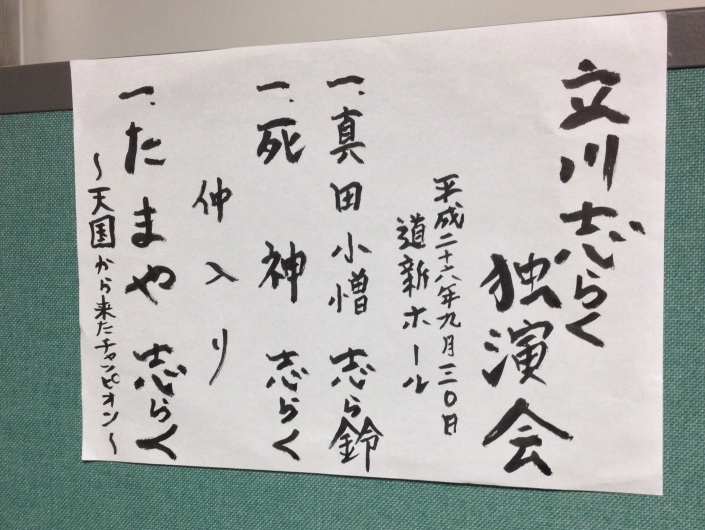 立川志らく
独演会
平成二十六年九月三〇日
道新ホール
一、真田小僧 志ら鈴
一、死神 志らく
仲入り
一、たまや 志らく
〜天国から来たチャンピオン〜